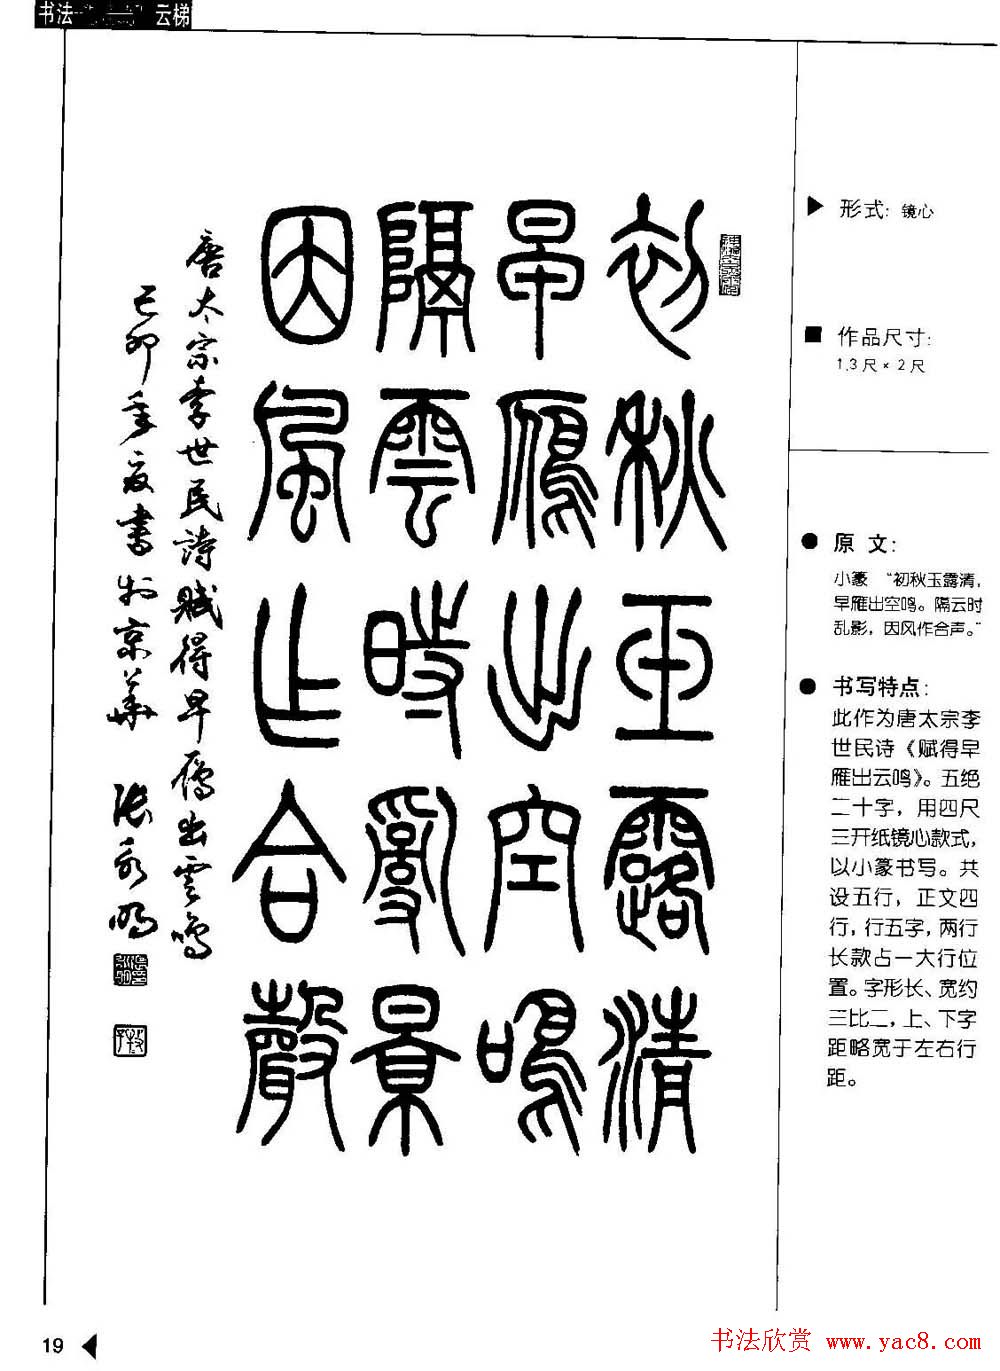 书法 云梯
初秋玉露清
早雁出空鳴
隔雲時亂景
因風作合聲
唐太宗李世民詩賦得早雁出雲鳴
己卯年夏書於京華 張永明
形式: 镜心
作品尺寸:
1.3尺×2尺
原 文:
小篆 “初秋玉露清,
早雁出空鸣。隔云时
乱影, 因风作合声。”
书写特点:
此作为唐太宗李
世民诗《赋得早
雁出云鸣》。五绝
二十字, 用四尺
三开纸镜心款式,
以小篆书写。共
设五行, 正文四
行, 行五字, 两行
长款占一大行位
置。字形长、宽约
三比二, 上、下字
距略宽于左右行
距。
19
书法欣赏 www.yac8.com